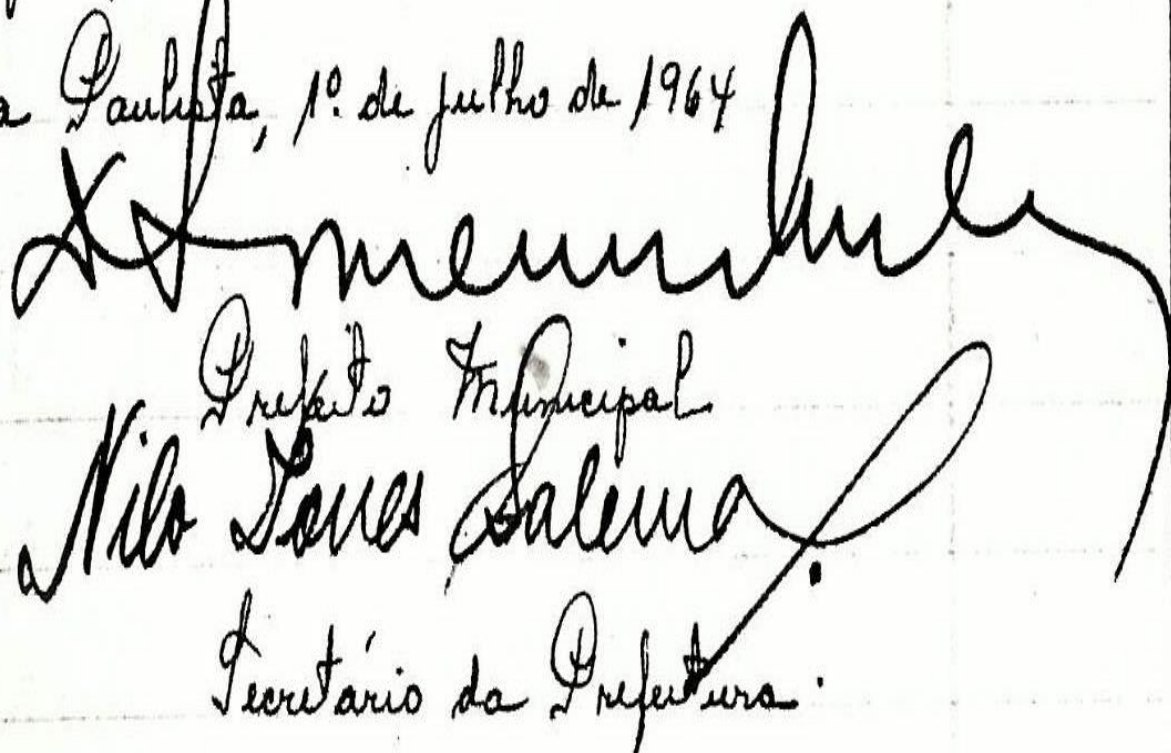 a Paulista, 1º de julho de 1964
Prefeito Municipal
Nilo Torres Salema
Secretário da Prefeitura.